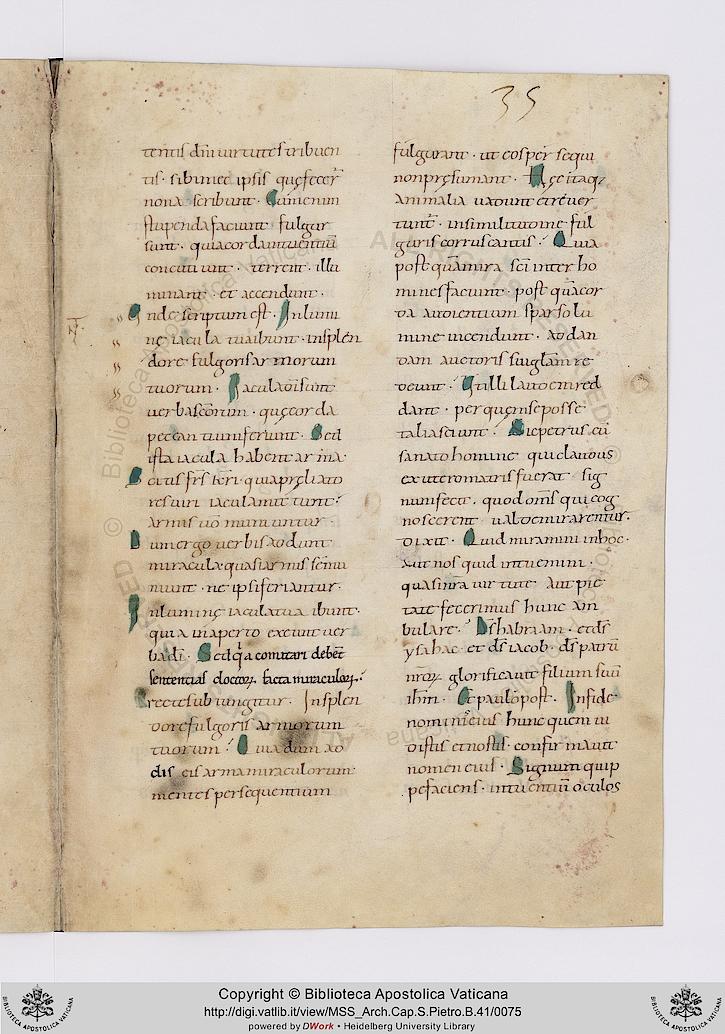 35
tentis dni uirtutes tribuen
tis · sibimet ipsis quę fecer̄
non ascribunt · Cum enim
stupenda faciunt fulgur
sunt · quia corda intuentiū
concutiunt · terrent · illu
minant · et accendunt ·
Unde scriptum est · In lumi
ne iacula tua ibunt · insplen
dore fulgoris armorum
tuorum · Iacula dī sunt
uerba scōrum · quę corda
peccantium feriunt · Sed
ista iacula habent arma
res uiri iaculantur
armis uō muniuntur ·
Dum ergo uerbis addunt
miracula quasi armis semu
niunt · ne ipsi feriantur ·
In lumine iacula tua ibunt ·
quia inaperto exeunt uer
ba dī · Sed q̄a comitari debēt
sententias doctorꝝ facta miraculorꝝ ·
recte subiungitur · Insplen
dore fulgoris armorum
tuorum · Quia dum ad
dis eis arma miraculorum ·
mentes persequentium
fulgurant · ut eos per sequi
non pręsumant · Hęc itaq;
animalia uadunt et reuer
tunt̄ · insimilitudine ful
guris corruscantis · Quia
post quā mira sēi inter ho
mines faciunt · post quā cor
da audientium sparso lu
mine incendunt · ad dan
dam auctori suo glām re
deunt · Et illi laudem red
dunt · per quem se posse
talia sciunt · Sic petrus cū
sanato homine qui claudus
ex utero matris fuerat · sig
num fecit · quod om̄s qui cog
noscerent ualde mirarentur ·
dixit · Quid miramini inhoc ·
aut nos quid intuemini ·
quasi nra uirtute aut pie
tate fecerimus hunc am
bulare · Ds̄ habraam · et ds̄
ysahac et ds̄ iacob · ds̄ patrū
nrorꝝ glorificauit filium suū
ihm̄ · Et paulo post · In fide
nominis eius hunc quem ui
distis et nostis · confirmauit
nomen eius · Signum quip
pe faciens · intuentiū oculos
Copyright © Biblioteca Apostolica Vaticana
http://digi.vatlib.it/view/MSS_Arch.Cap.S.Pietro.B.41/0075
powered by DWork • Heidelberg University Library
BIBLIOTECA APOSTOLICA VATICANA
BIBLIOTECA APOSTOLICA VATICANA